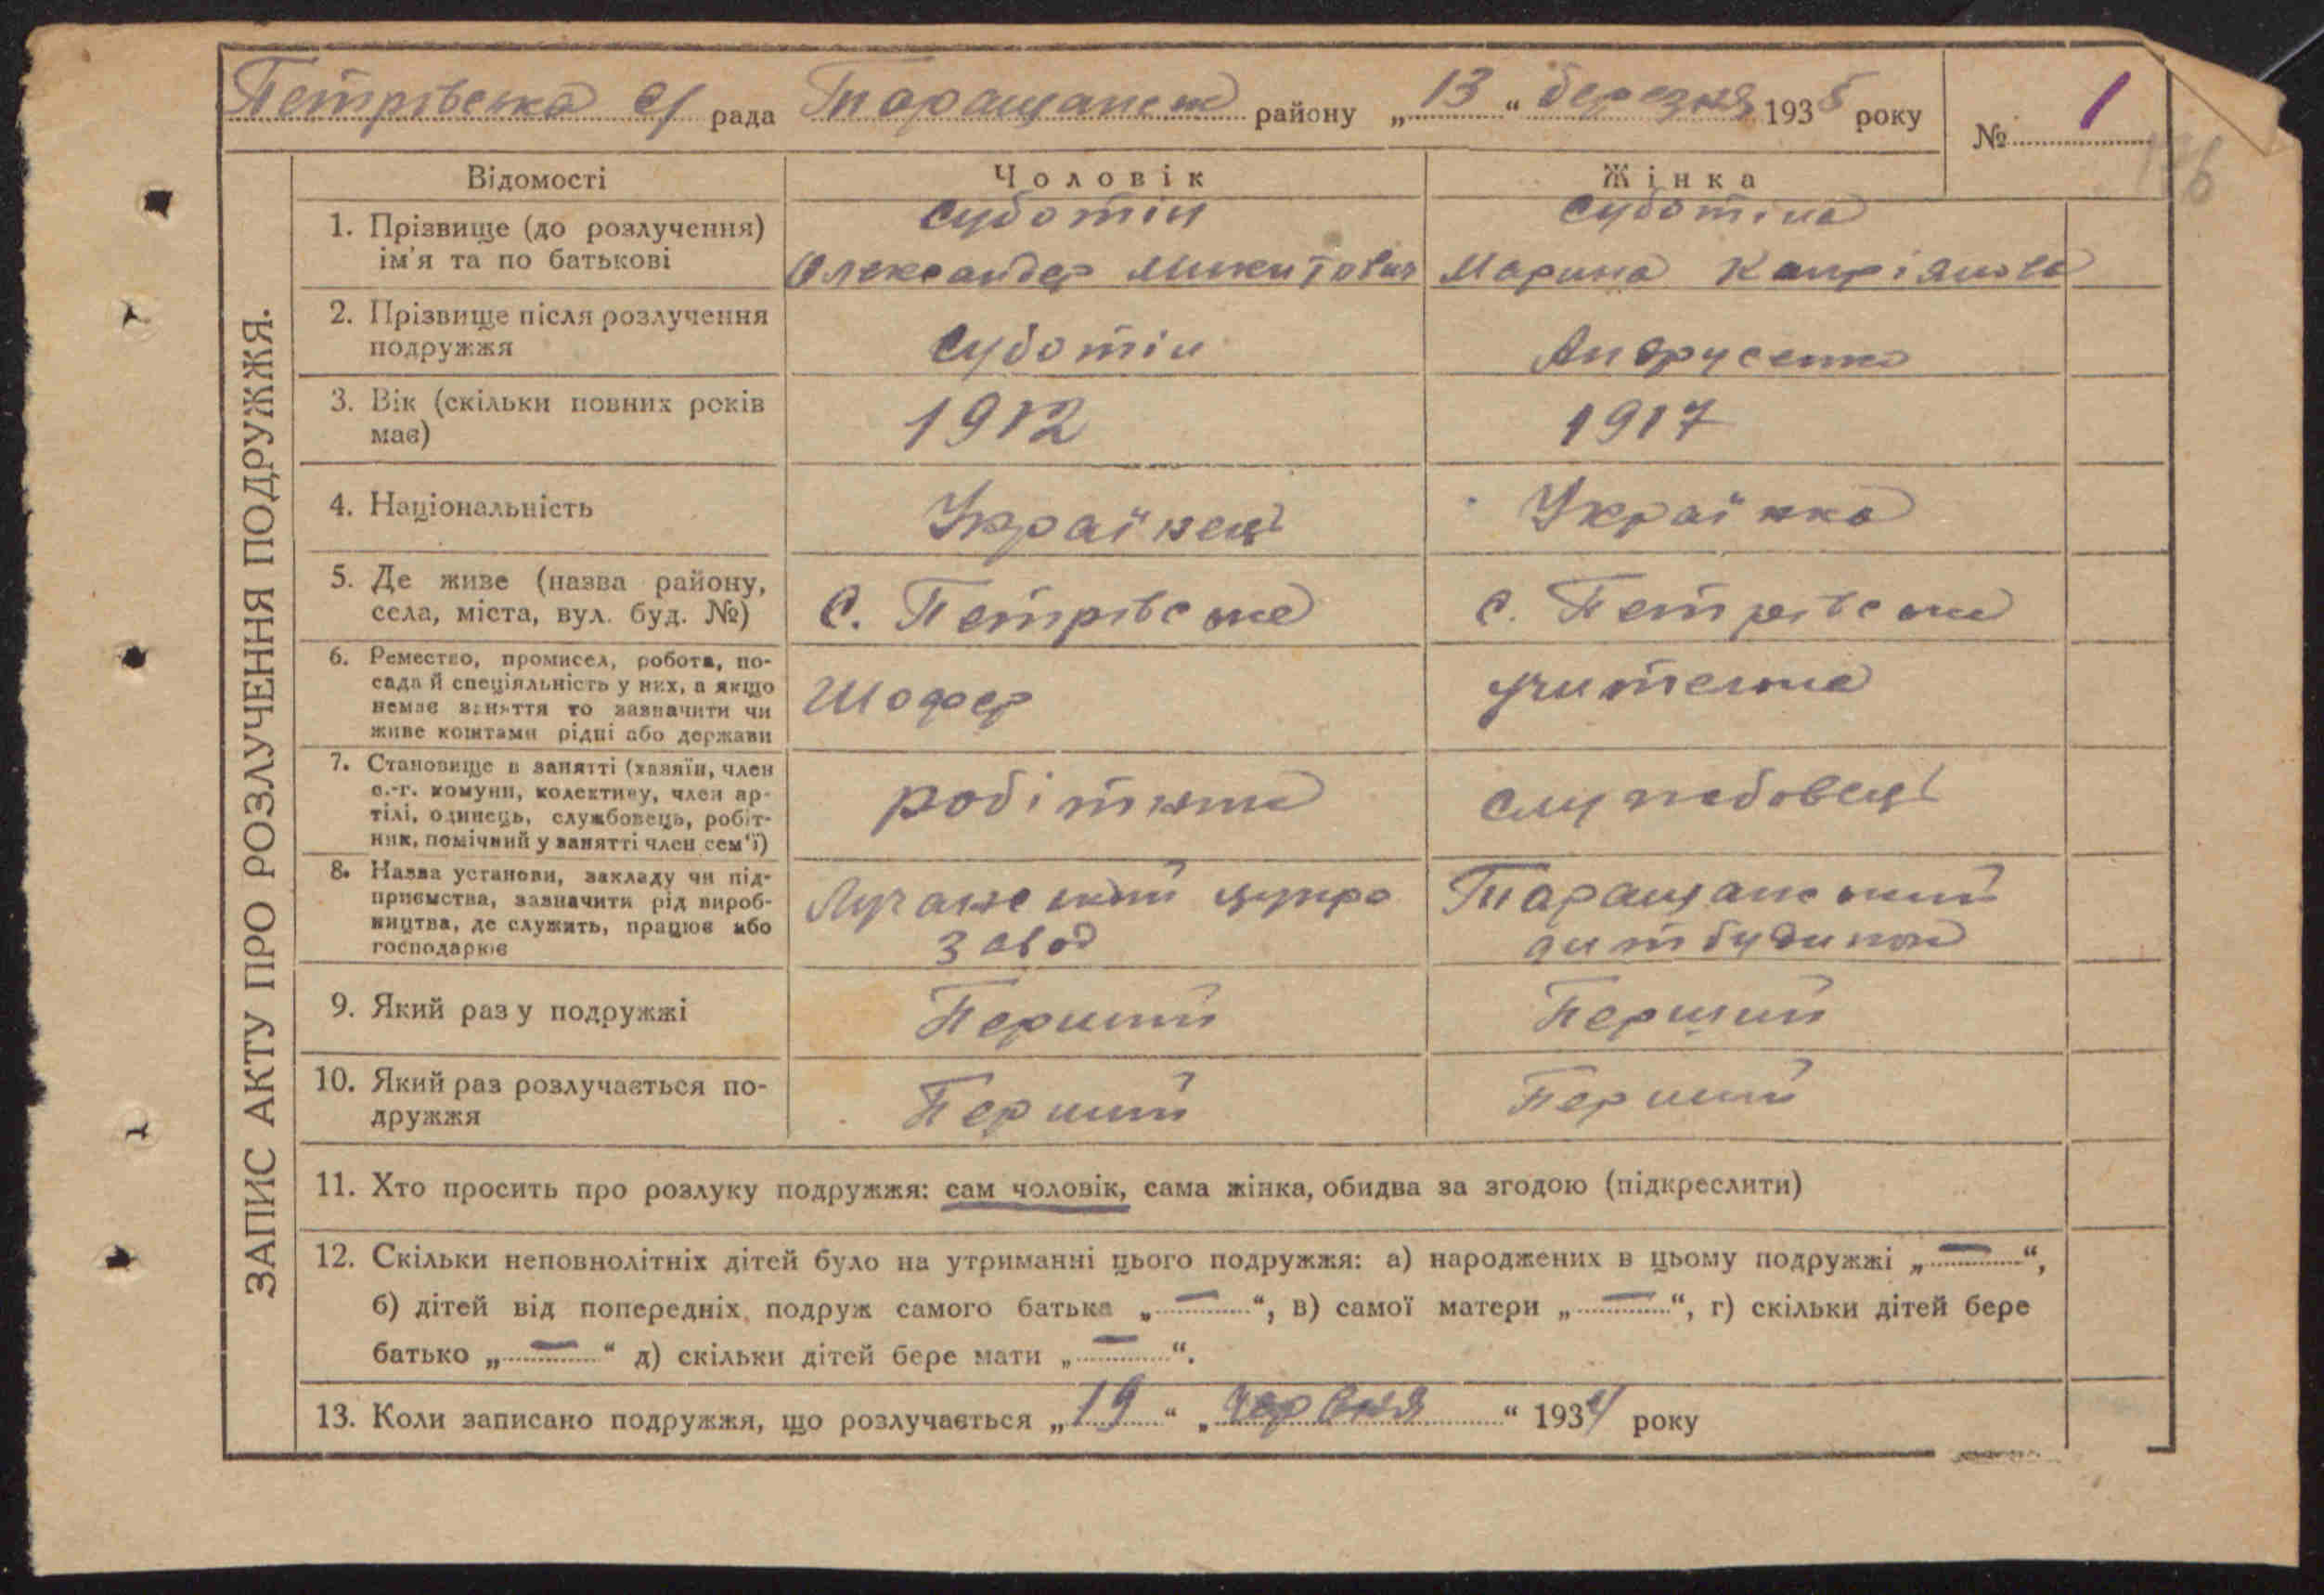 Петрівська с/ рада Таращанськ району „13“ березня 1935 року
№ 1
ЗАПИС АКТУ ПРО РОЗЛУЧЕННЯ ПОДРУЖЖЯ.
Відомості Чоловік Жінка
1. Прізвище (до розлучення) Суботін Суботіна
ім'я та по батькові Олександер Микитович Марина
2. Прізвище після розлучення
подружжя Суботін Андрусенко
3. Вік (скільки повних років 1912 1917
має)
4. Національність Українець Українка
5. Де живе (назва району,
села, міста, вул. буд. №) С. Петрівське с. Петрівське
6. Ремество, промисел, робота, по-
сада й спеціяльність у них, а якщо Шофер учителька
немає заняття то зазначити чи
живе коштами рідні або держави
7. Становище в занятті (хазяїн, член
с.-г. комуни, колективу, член ар- робітник службовець
тілі, одинець, службовець, робіт-
ник, помічний у занятті член сем'ї)
8. Назва установи, закладу чи під- Лучанський цукро Таращанський
приємства, зазначити рід вироб- завод дитбудинок
ництва, де служить, працює або
господарює
9. Який раз у подружжі Перший Перший
10. Який раз розлучається по- Перший Перший
дружжя
11. Хто просить про розлуку подружжя: сам чоловік, сама жінка, обидва за згодою (підкреслити)
12. Скільки неповнолітніх дітей було на утриманні цього подружжя: а) народжених в цьому подружжі „—“,
б) дітей від попередніх подруж самого батька „—“, в) самої матери „—“, г) скільки дітей бере
батько „—“ д) скільки дітей бере мати „—“.
13. Коли записано подружжя, що розлучається „19“ „червня“ 1934 року